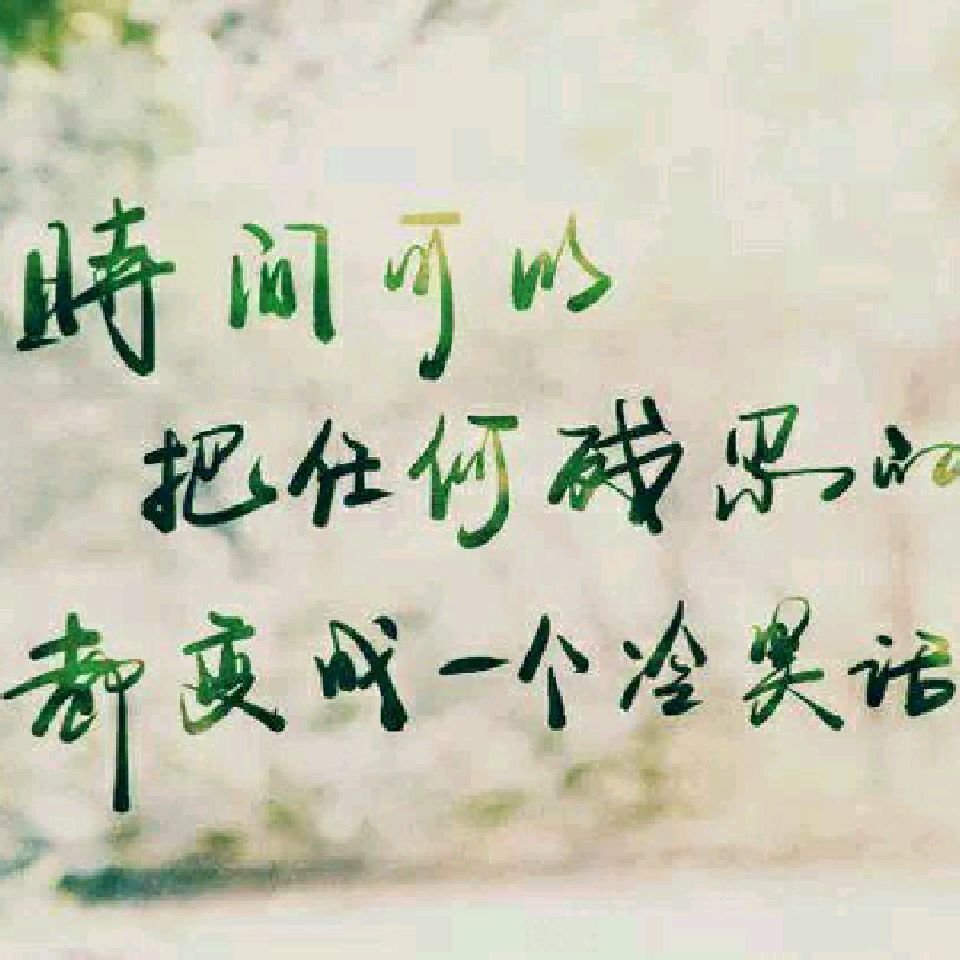 時间可以
把任何残的
都变成一个冷笑话